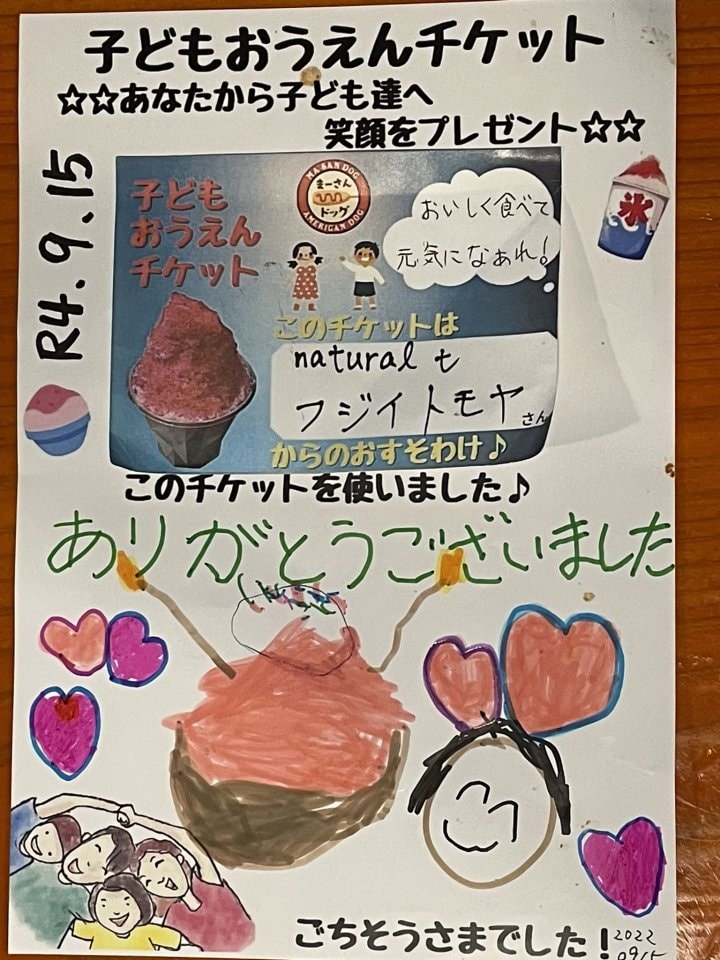 子どもおうえんチケット
☆☆あなたから子ども達へ
笑顔をプレゼント☆☆
R4.9.15
氷
子ども
おうえん
チケット
MA SAN DOG
まーさん
ドッグ
AMERICAN DOG
おいしく食べて
元気になぁれ!
このチケットは
natural t
フジイトモヤ さん
からのおすそわけ♪
このチケットを使いました♪
ありがとうございました
ごちそうさまでした!
2022
09/15